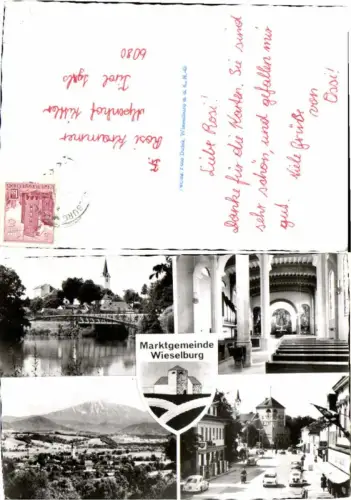 Liebe Rosi!
Danke für die Karten. Sie sind
sehr schön, und gefallen mir
gut. Viele Grüße
von
Ossi!
Rosi Krammer
Alpenhof Kittler
Tirol Igls
6080
Marktgemeinde
Wieselburg